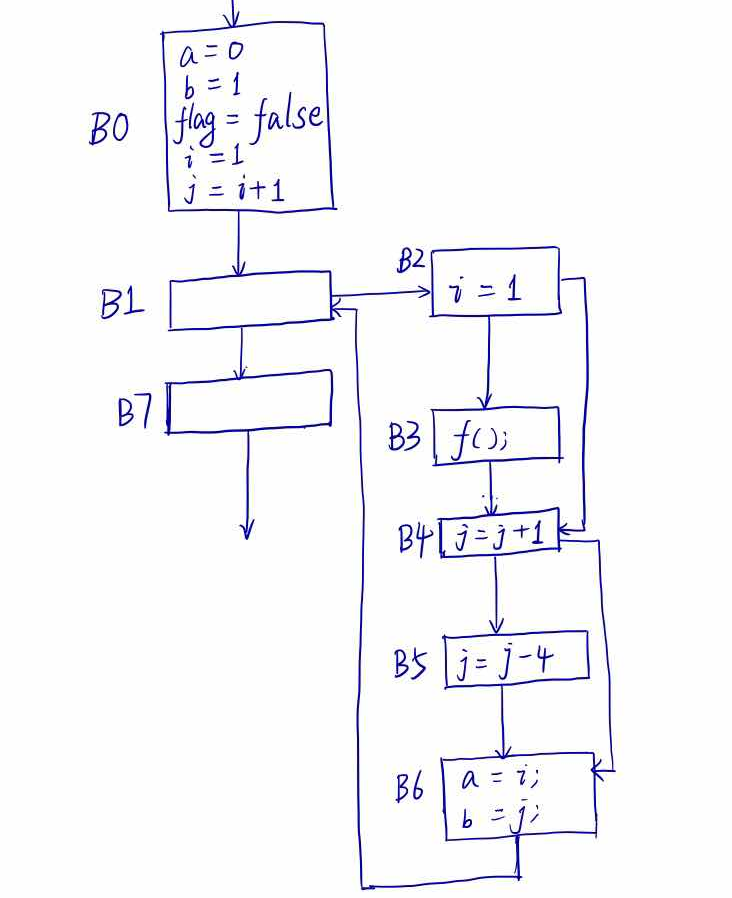 B0
a = 0
b = 1
flag = false
i = 1
j = i+1
B1
B2
i = 1
B7
B3
f();
B4
j = j+1
B5
j = j-4
B6
a = i;
b = j;